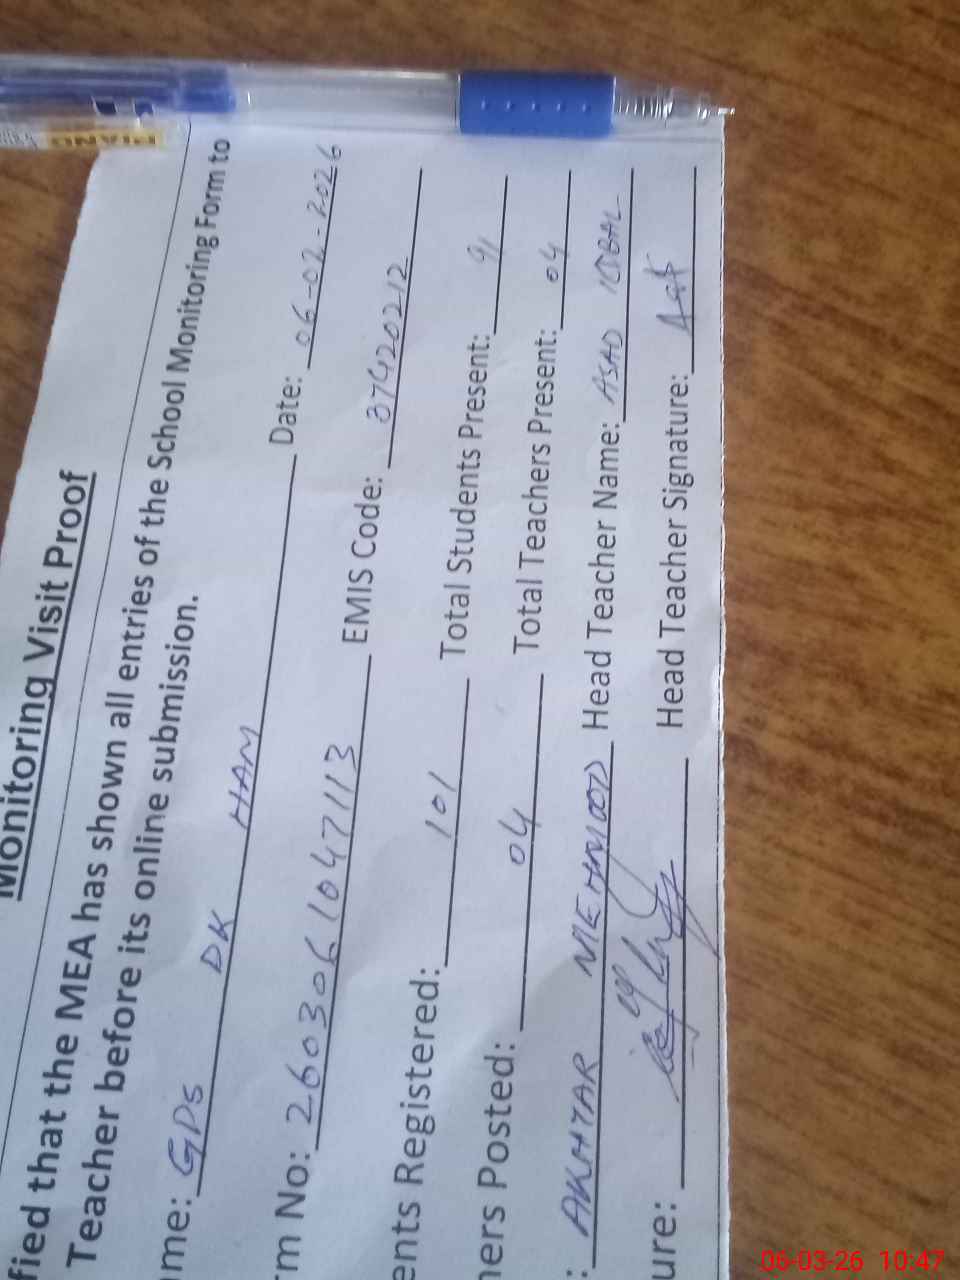 Monitoring Visit Proof
fied that the MEA has shown all entries of the School Monitoring Form to
Teacher before its online submission.
me: GPS DK HAM Date: 06-03-2026
rm No: 2603061047113 EMIS Code: 37420212
ents Registered: 101 Total Students Present: 91
hers Posted: 04 Total Teachers Present: 04
: AKHTAR MEHMOOD Head Teacher Name: ASAD IQBAL
ure: Head Teacher Signature:
PIANO
06-03-26 10:47